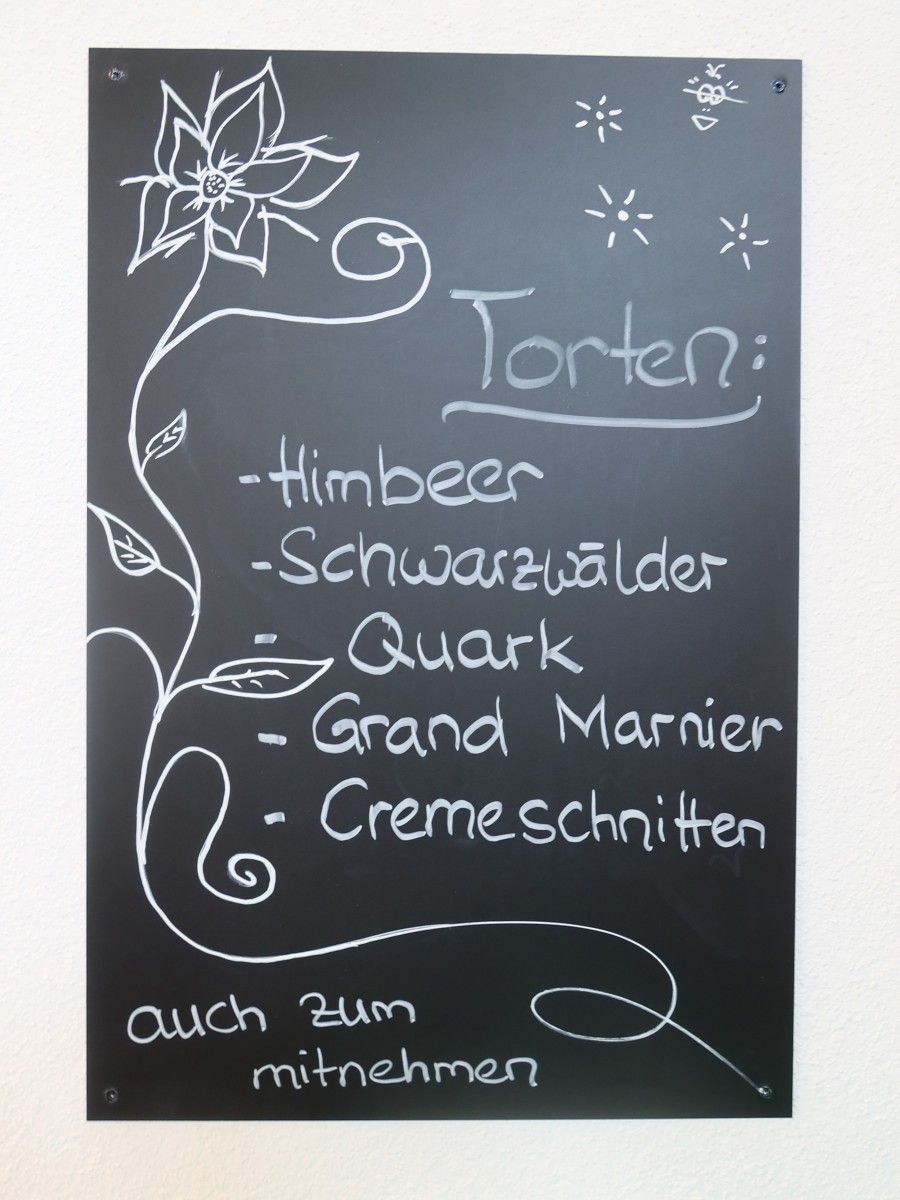 Torten:
- Himbeer
- Schwarzwälder
- Quark
- Grand Marnier
- Cremeschnitten
auch zum
mitnehmen